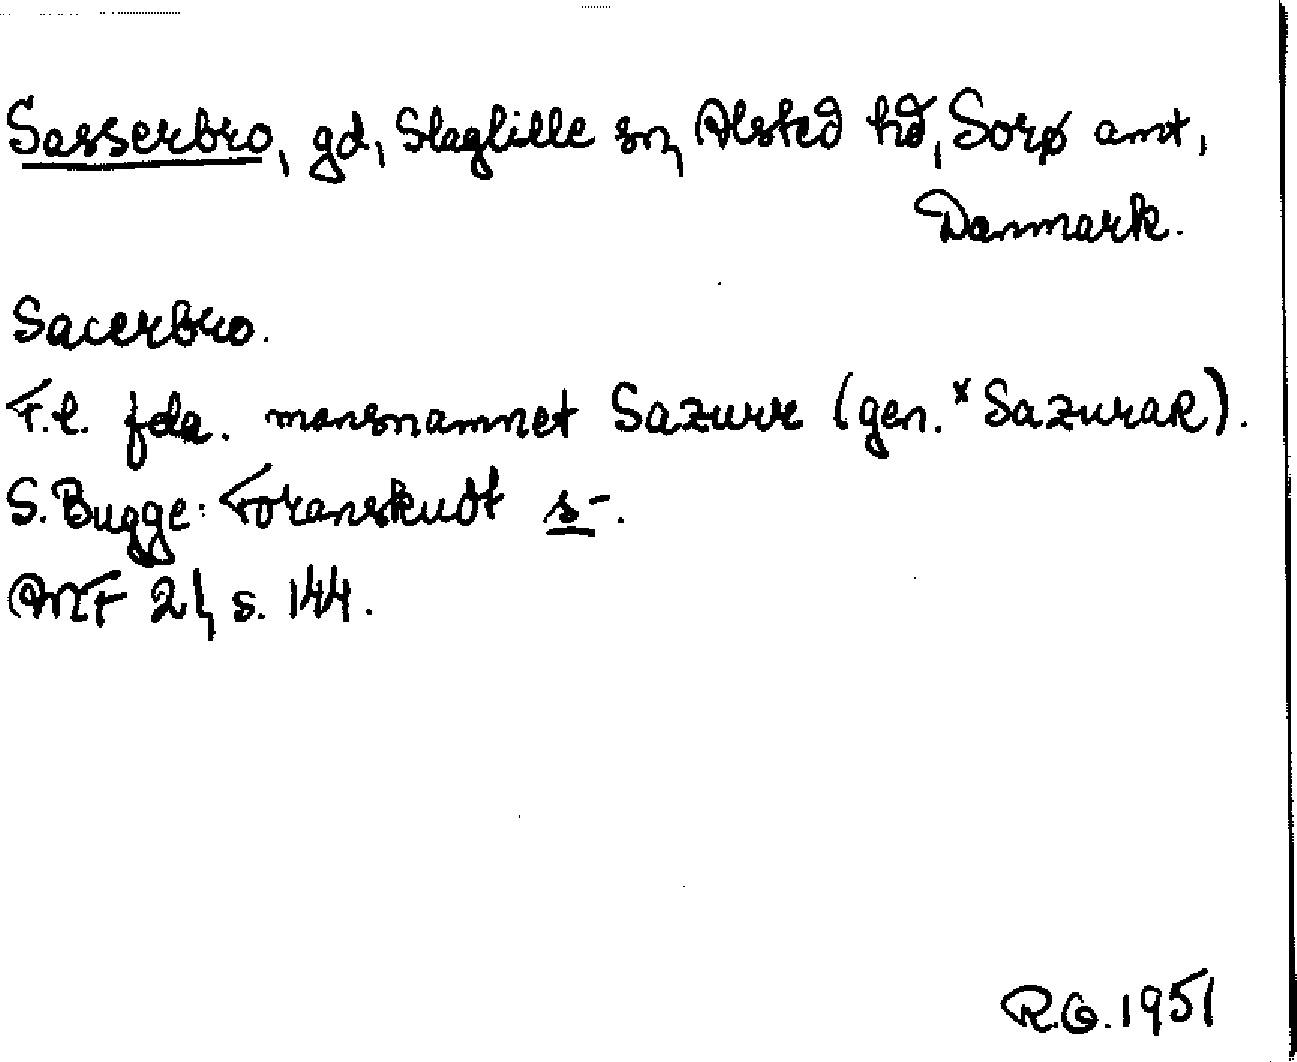 Sasserbro, gd, Slaglille sn, Alsted hd, Sorø amt,
Danmark.
Sacerbro.
F.l. fda. mansnamnet Sazurr (gen. *SazuraR).
S. Bugge: Foranskudt s-.
ANF 21, s. 144.
R.G. 1951